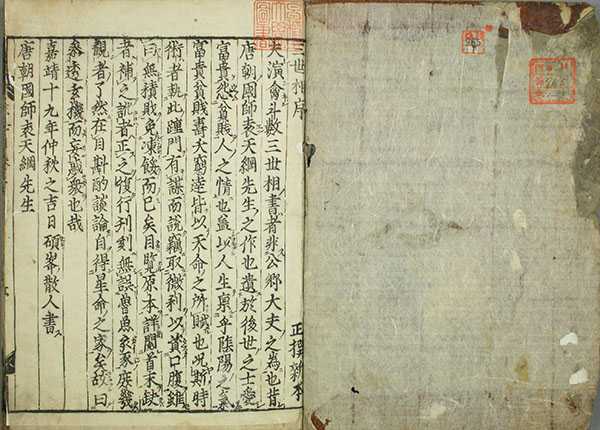 三世相序
夫演禽斗數三世相書者非公鄉大夫之為也昔
唐朝國師袁天綱先生之作也遺於後世之士愛
富貴怨貧賤人之情也蓋以人生稟乎陰陽之氣
富貴貧賤壽夭窮達皆以天命之所賦也况斯時
術者執此踵門有謀而說竊取微利以資口腹雖
曰無積賎免凍餒而已矣目覽原本詳閱首末缺
者補之訛者正之復行刋刻無誤魯魚亥豕庶幾
觀者了然在目斟酌談論自得星命之家矣故曰
參透玄機而妄惑衆也哉
嘉靖十九年仲秋之吉日碩峯散人書
唐朝國師袁天綱先生
正撰